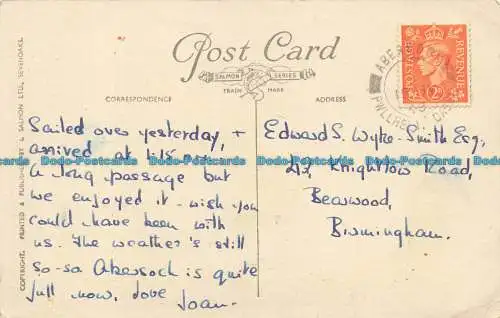 Post Card
SALMON SERIES
TRADE MARK
CORRESPONDENCE
ADDRESS
COPYRIGHT. PRINTED & PUBLISHED BY J. SALMON LTD., SEVENOAKS.
Sailed over yesterday, +
arrived at 1.15
a long passage but
we enjoyed it - wish you
could have been with
us. The weather's still
so-so Abersoch is quite
full now, love
Joan.
Edward S. Wyke-Smith Esq.,
Knightlow Road,
Bearwood,
Birmingham.
POSTAGE
REVENUE
2D
PWLLHELI
Dodo-Postcards Dodo-Postcards Dodo-Postcards Dodo-Postcards